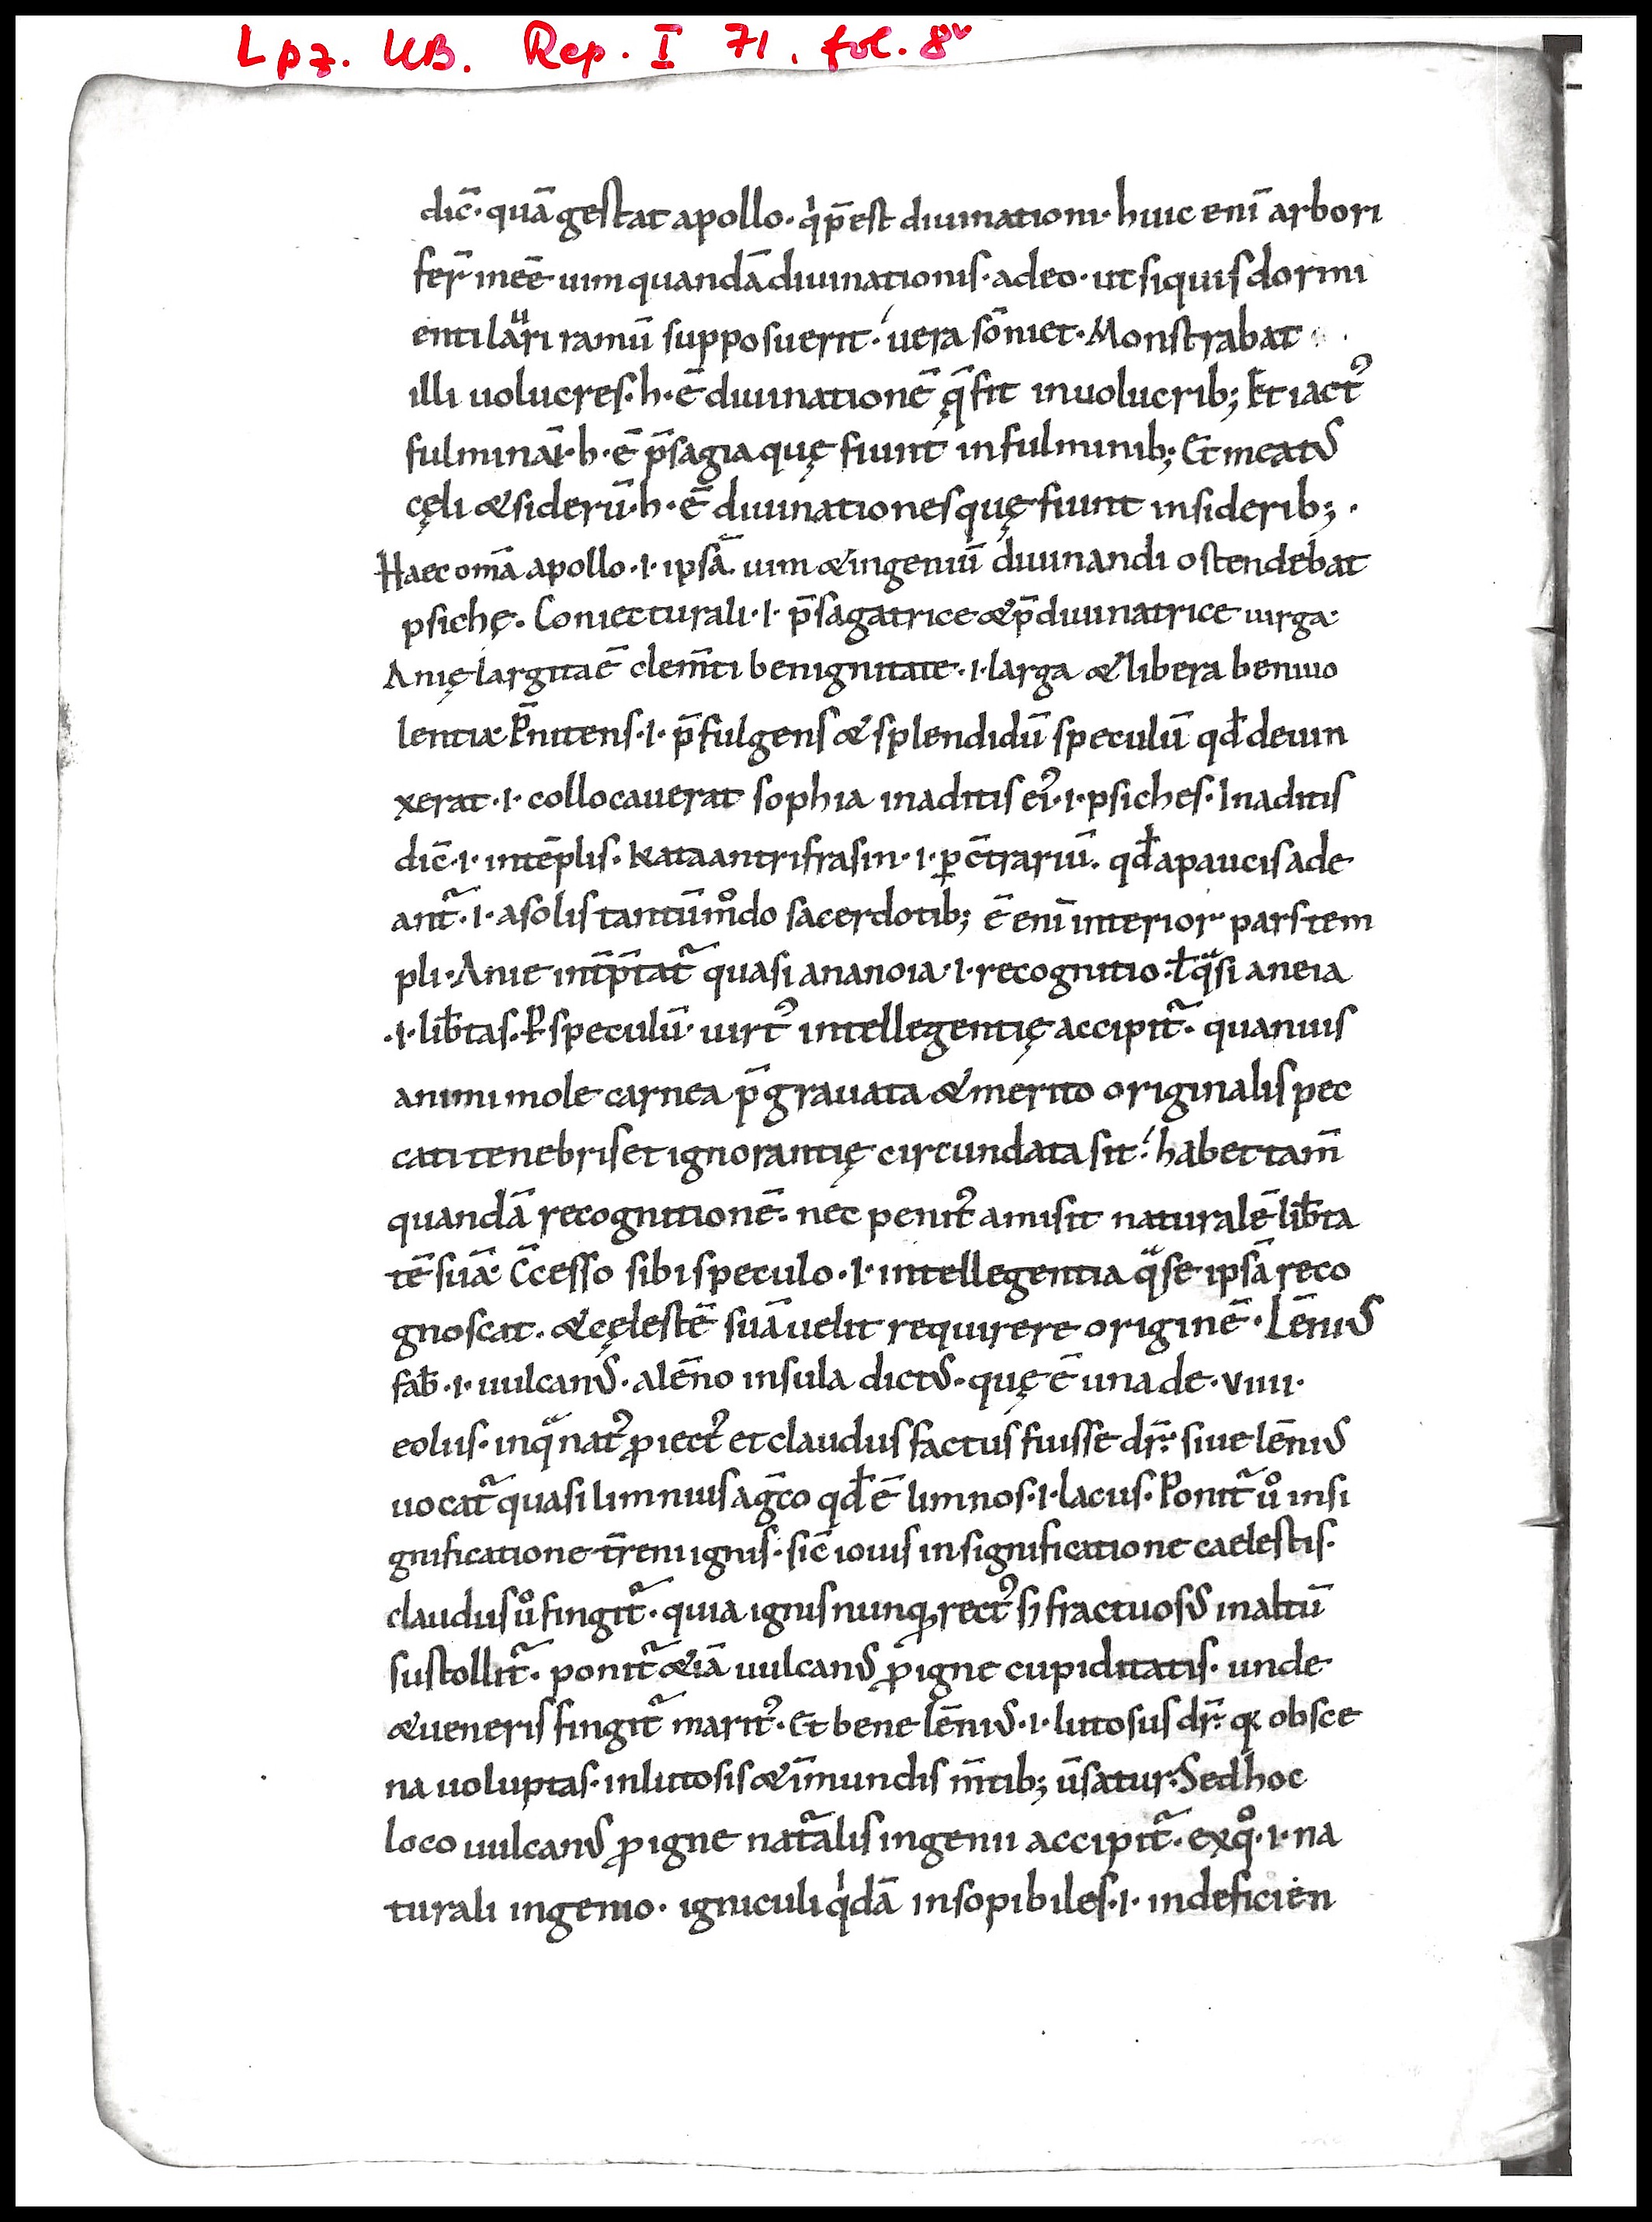 Lpz. UB. Rep. I 71. fol. 8v
dic̄· quā gestat apollo· q̍ p̄est diuinationi· huic eni̅ arbori
fer̄ inee̅ uim quandā diuinationis· adeo· ut siquis dormi
enti lau̎ri ramū supposuerit· uera so̅niet· Monstrabat
illi uolucres· h· ē diuinationē q̨̄ fit inuolucrib; Et iact᾽
fulminā̅i· h· ē p̄sagia quę fiunt infulminib; Et meatus
cęli & siderū· h· ē diuinationes quę fiunt insiderib; ·
Haec om̄a apollo· i· ipsā uim & ingeniū diuinandi ostendebat
psichę. Coniecturali· i· p̄sagatrice & p̄diuinatrice uirga·
Anię largitaē clem̄ti benignitate· i· larga & libera beniuo
lentia· P̄nitens· i· p̄fulgens & splendidū speculū qđ deuin
xerat· i· collocauerat sophia inaditis ei᾽· i· psiches· Inaditis
dic̄· i· intēplis· Kataantrifrasin· i· ꝑ c̄trariū. qđ apaucis ade
ant᷑· i· asolis tantūm̊do sacerdotib; ē eni̅ interior pars tem
pli· Anie int̄p̄tat᷑ quasi ananoia· i· recognitio· ƚ q̎si aneia
·i· lib̄tas. P̄ speculū· uirt᾽ intellegentię accipit᷑· quanuis
animi mole carnea p̄grauata & merito originalis pec
cati tenebris et ignorantię circundata sit· habet tam̄
quandā recognitionē· nec penit᾽ amisit naturalē lib̄ta
tē suā· C̄cesso sibi speculo· i· intellegentia q̎ se ipsā reco
gnoscat· & cęlestē suā uelit requirere originē· Lēnius
fab̄· i· uulcanus· alēno insula dictus· quę ē una de· viiii·
eolus· inq̎ nat᾽ ꝓiect᾽ et claudus factus fuisse dr̄· siue lēnius
uocat᷑ quasi limnius agc̄o qđ ē limnos· i· lacus· Ponit᷑ ů insi
gnificatione t̄reni ignis· sic̄ iouis insignificatione caelestis·
claudus ů fingit᷑· quia ignis nunq̨ rect᾽ s; fractuosus inaltū
sustollit᷑· ponit᷑ & iā uulcanus ꝓ igne cupiditatis· unde
& ueneris fingit᷑ marit᾽· Et bene lēnius· i· lutosus dr̄· qꝛ obsce
na uoluptas· inlutosis & īmundis m̄tib; ūsatur· Sed hoc
loco uulcanus ꝓ igne nat᷑alis ingenii accipit᷑· exq̊· i· na
turali ingenio· igniculi q̍dā insopibiles· i· indeficien